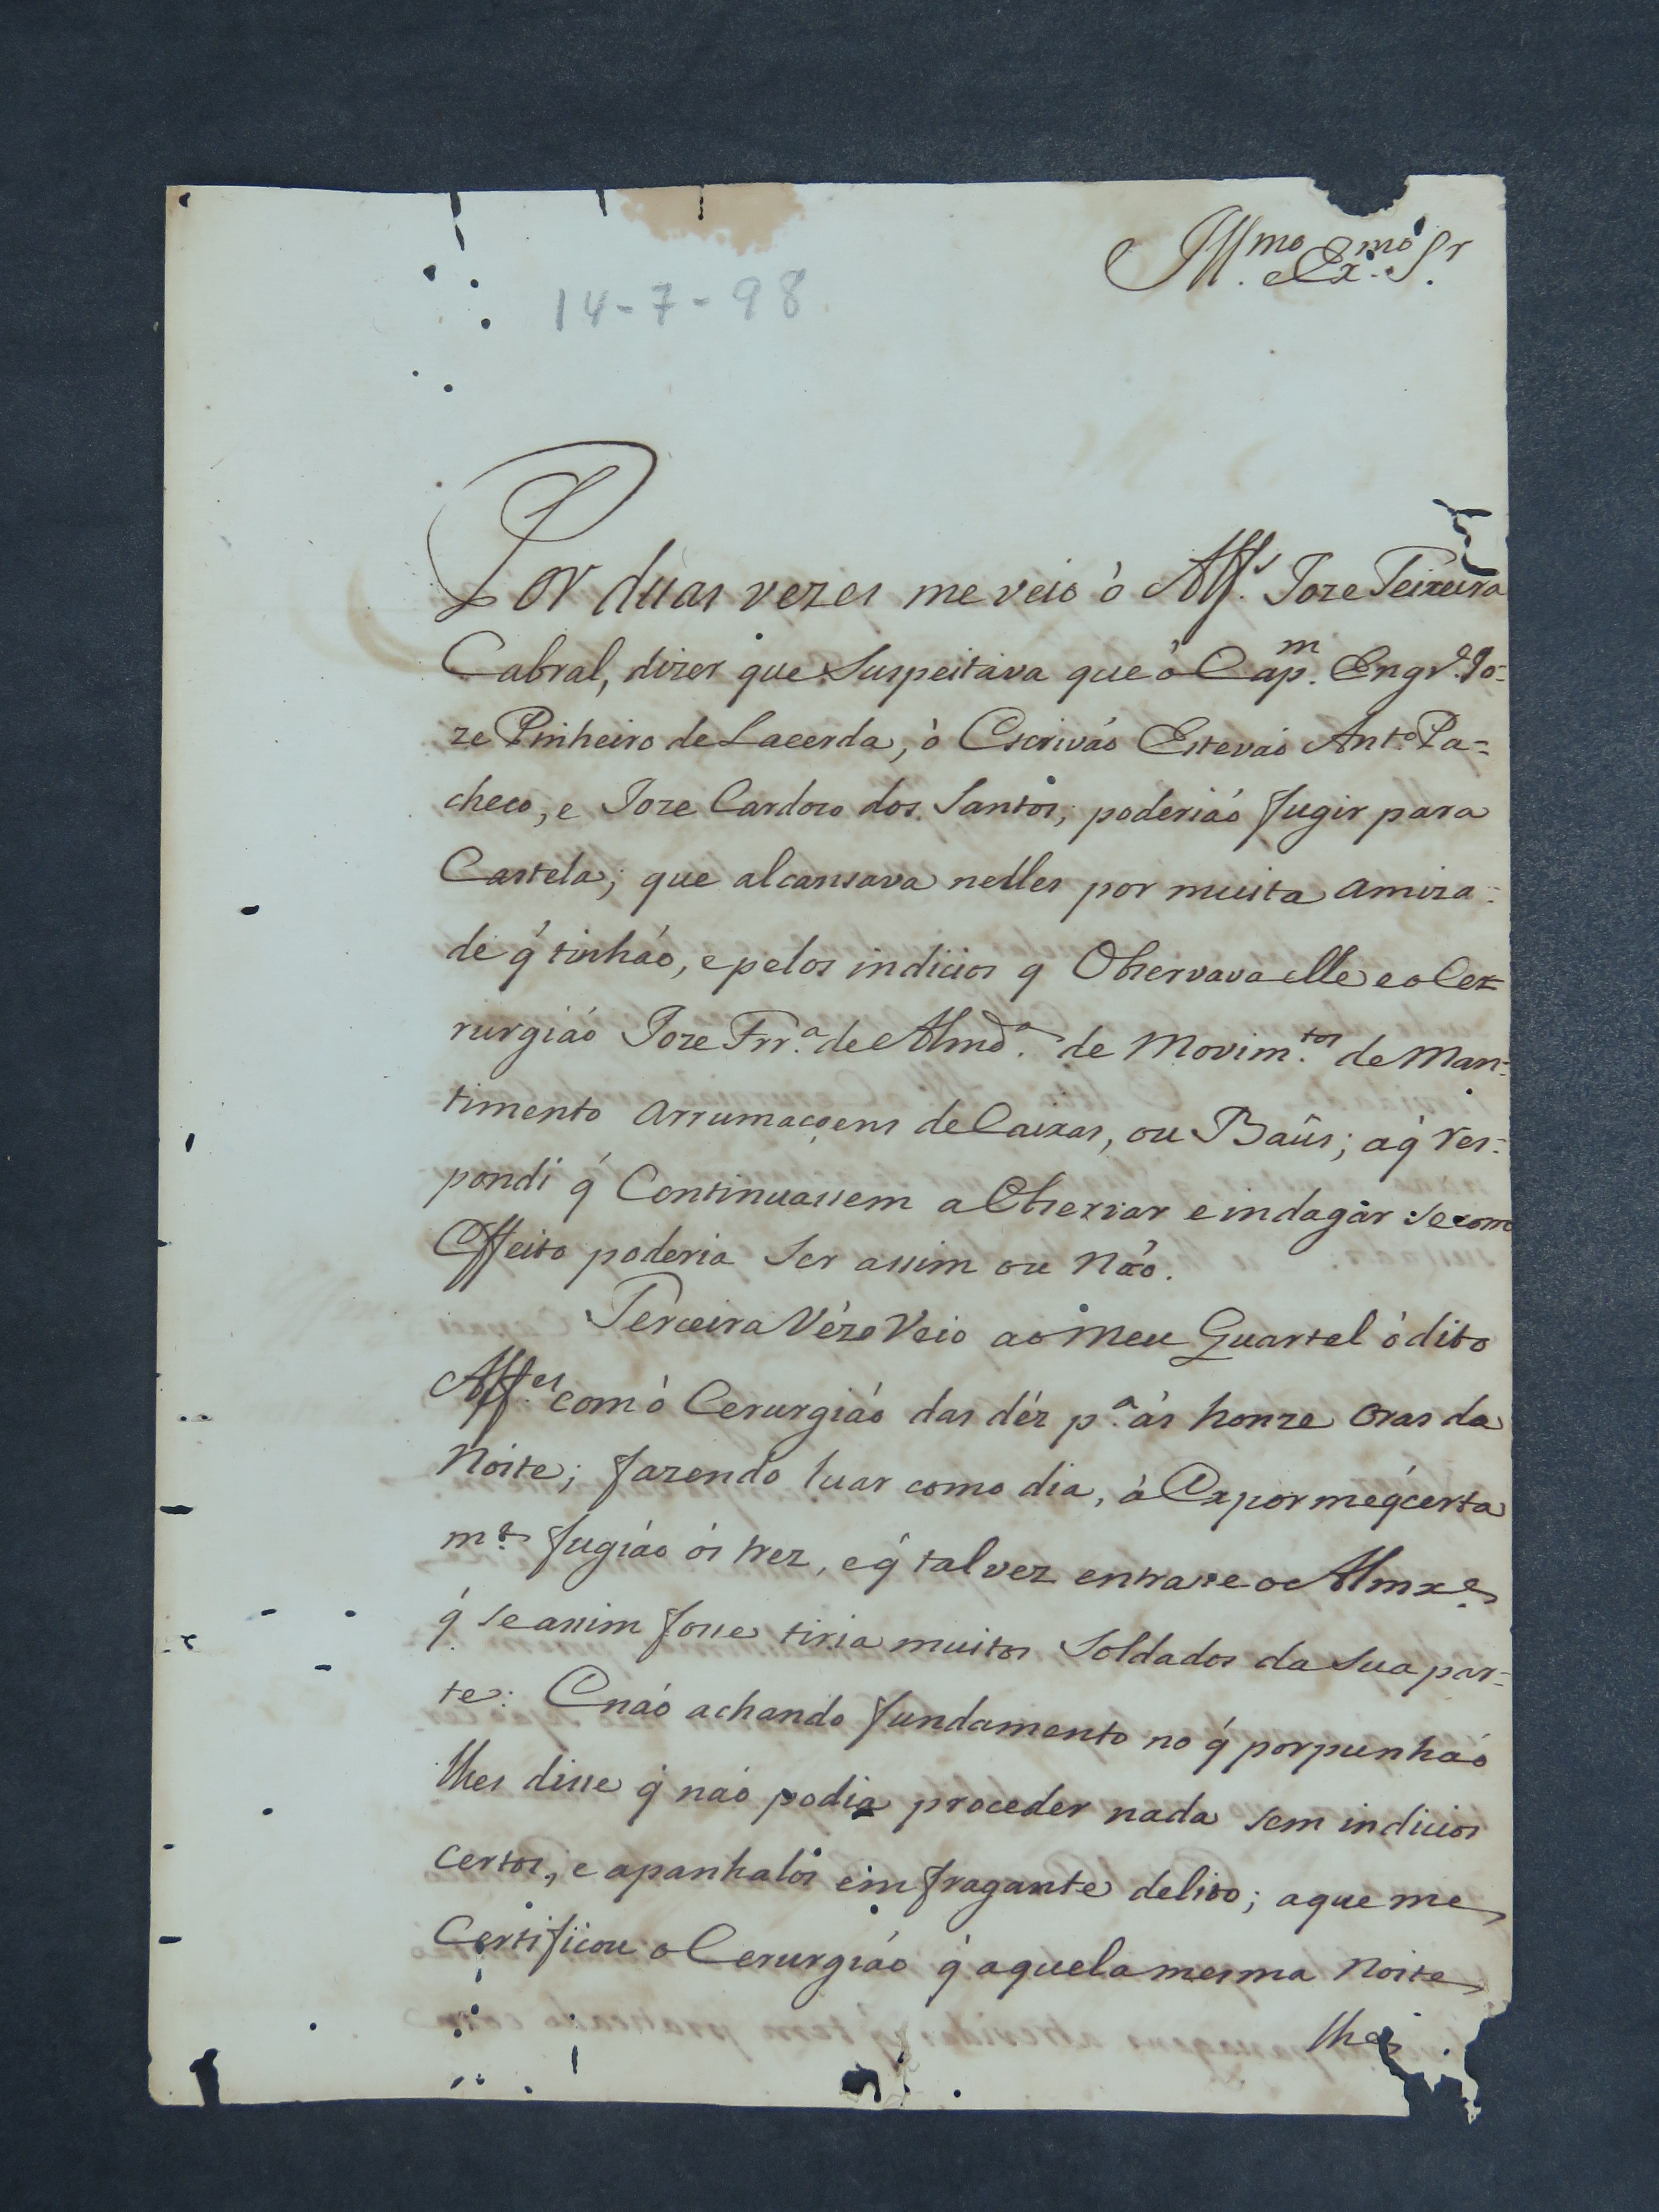 Ill.mo e Ex.mo S.r
14-7-98
Por duas vezes me veio ò Alf.s Joze Teixeira
Cabral, dizer que Suspeitava que ò Cap.m Engr.o Jo-
ze Pinheiro de Lacerda, ò Escriváo Esteváo Ant.o Pa=
checo, e Joze Cardozo dos Santos; poderiáo fugir para
Castela; que alcansava nelles por muita amiza-
de q́ tinháo, e pelos indicios q Observava elle e o Cer=
rurgiáo Joze Frr.a de Almd.a de Movim.tos de Man-
timento Arrumaçoens de Caixas, ou Baûs; a q́ res-
pondi q́ Continuassem a Observar e indagàr se com
Effeito poderia Ser assim ou Náo.
Terceira Véze Veio ao Meu Quartel ò dito
Alf.es com ò Cerurgiáo das déz p.a ás honze Oras da
Noite; fazendo luar como dia, à Expor me q́ certa
m.te fugiáo ós trez, e q́ talvez entrase o Almx.e
q́ se assim fosse tiria muitos Soldados da Sua par-
te: E náo achando fundamento no q́ porpunháo
lhes disse q́ náo podia proceder nada sem indicios
certos, e apanhalos eim fragante delito; a que me
Certificou o Cerurgiáo q́ aquela mesma Noite
lhes